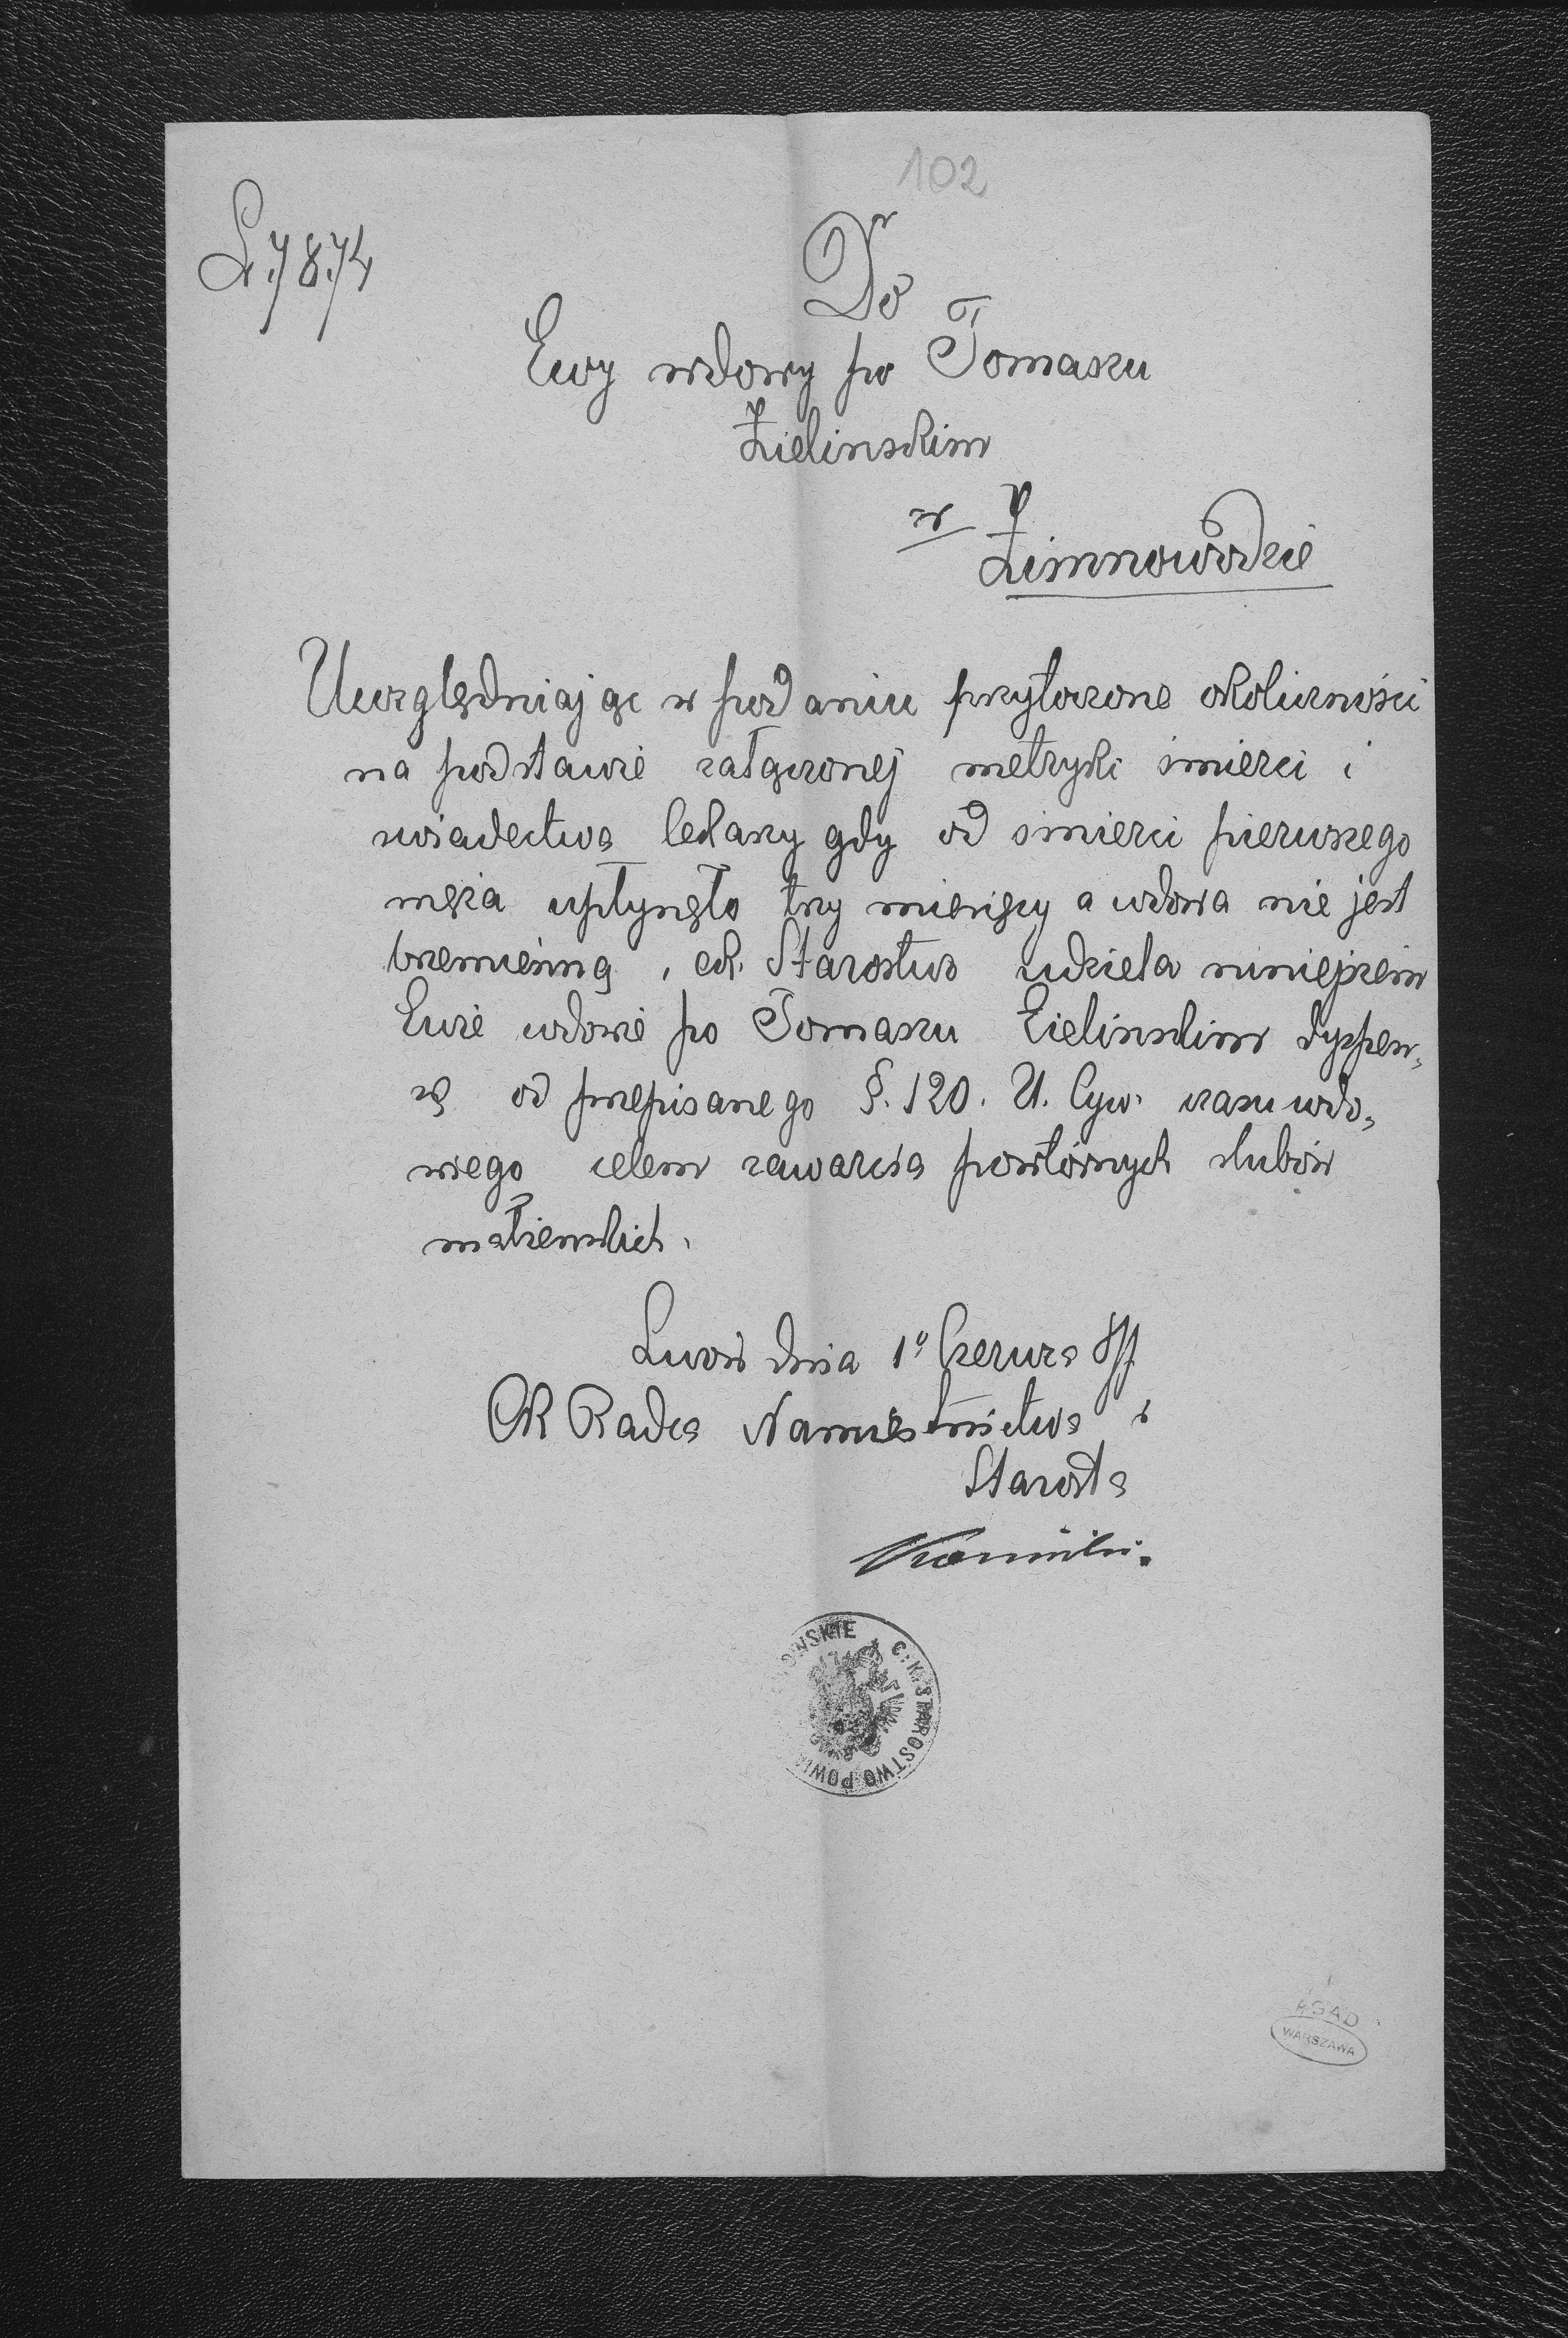 102
L. 7874
Do
Ewy wdowy po Tomaszu
Zielinskim
w Zimnowódzie
Uwzględniając w podaniu przytoczone okoliczności
na podstawie załączonej metryki śmierci i
świadectwa lekarzy gdy od śmierci pierwszego
męża upłynęło trzy miesięcy a wdowa nie jest
brzemienną, ck. Starostwo udziela niniejszem
Ewie wdowie po Tomaszu Zielinskim dyspen„
zę od przepisanego §. 120. U. Cyw. czasu wdo„
wiego celem zawarcia powtórnych ślubów
małżeńskich.
Lwów dnia 1° Czerwca
CK Radca Namiestnictwa i
Starosta
C. K. STAROSTWO POWI OWSKIE
AGAD
WARSZAWA